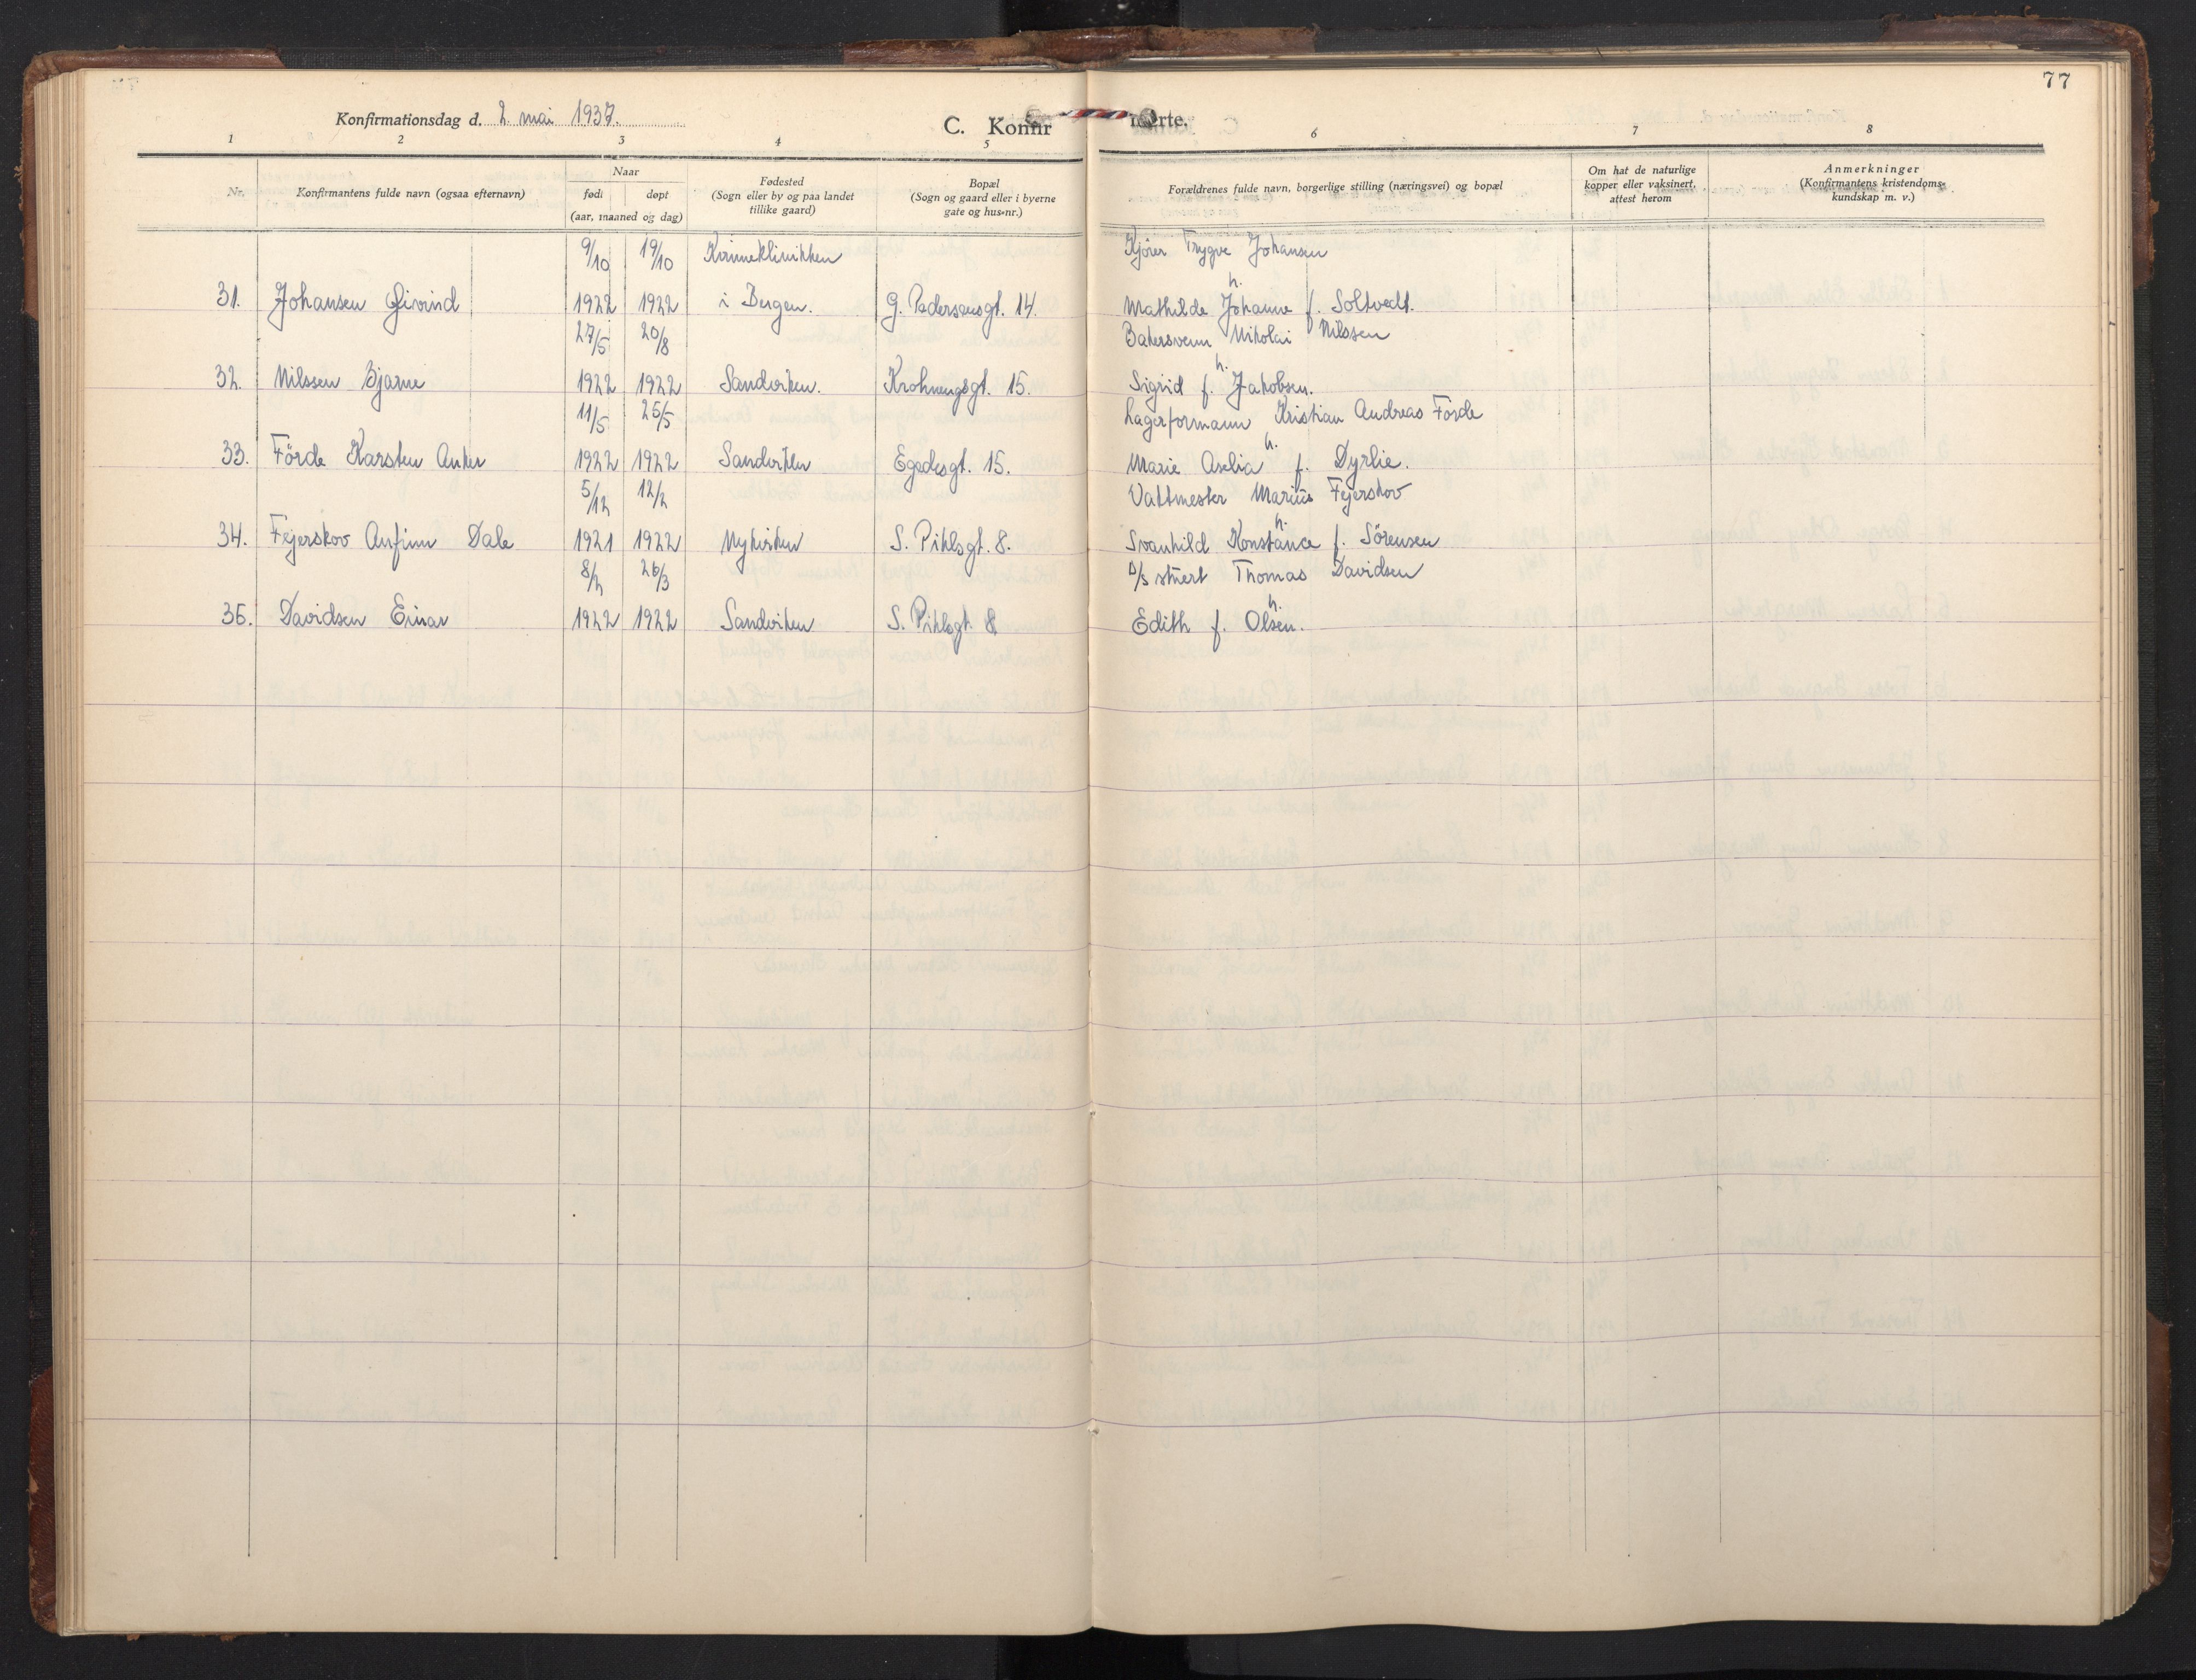 77
Konfirmationsdag d. 2. mai 1937.
C. Konfir merte.
1 2 3 4 5 6 7 8
Nr. Konfirmantens fulde navn (ogsaa efternavn) Naar født døpt (aar, maaned og dag) Fødested (Sogn eller by og paa landet tillike gaard) Bopæl (Sogn og gaard eller i byerne gate og hus-nr.) Forældrenes fulde navn, borgerlige stilling (næringsvei) og bopæl Om hat de naturlige kopper eller vaksinert, attest herom Anmerkninger (Konfirmantens kristendoms-kundskap m. v.)
9/10 19/10 Kvinneklinikken Kjörer Trygve Johansen
h.
31. Johansen Eivind 1922 1922 i Bergen. G. Pedersensgt. 14. Mathilde Johanne f. Soltvedt.
27/5 20/8 Bakersvenn Nikolai Nilssen
h.
32. Nilssen Bjarne 1922 1922 Sandviken. Krohnengsgt. 15. Sigrid f. Jakobsen.
11/5 25/5 Lagerformann Kristian Andreas Förde
h.
33. Förde Karsten Anker 1922 1922 Sandviken Egedesgt. 15. Marie Aselia f. Dyrlie.
5/12 12/2 Vaktmester Marius Fejerskov
h.
34. Fejerskov Anfinn Dale 1921 1922 Nykirken S. Pihlsgt. 8. Svanhild Konstance f. Sörensen
8/2 26/3 D/S stuert Thomas Davidsen
h.
35. Davidsen Einar 1922 1922 Sandviken S. Pihlsgt. 8 Edith f. Olsen.